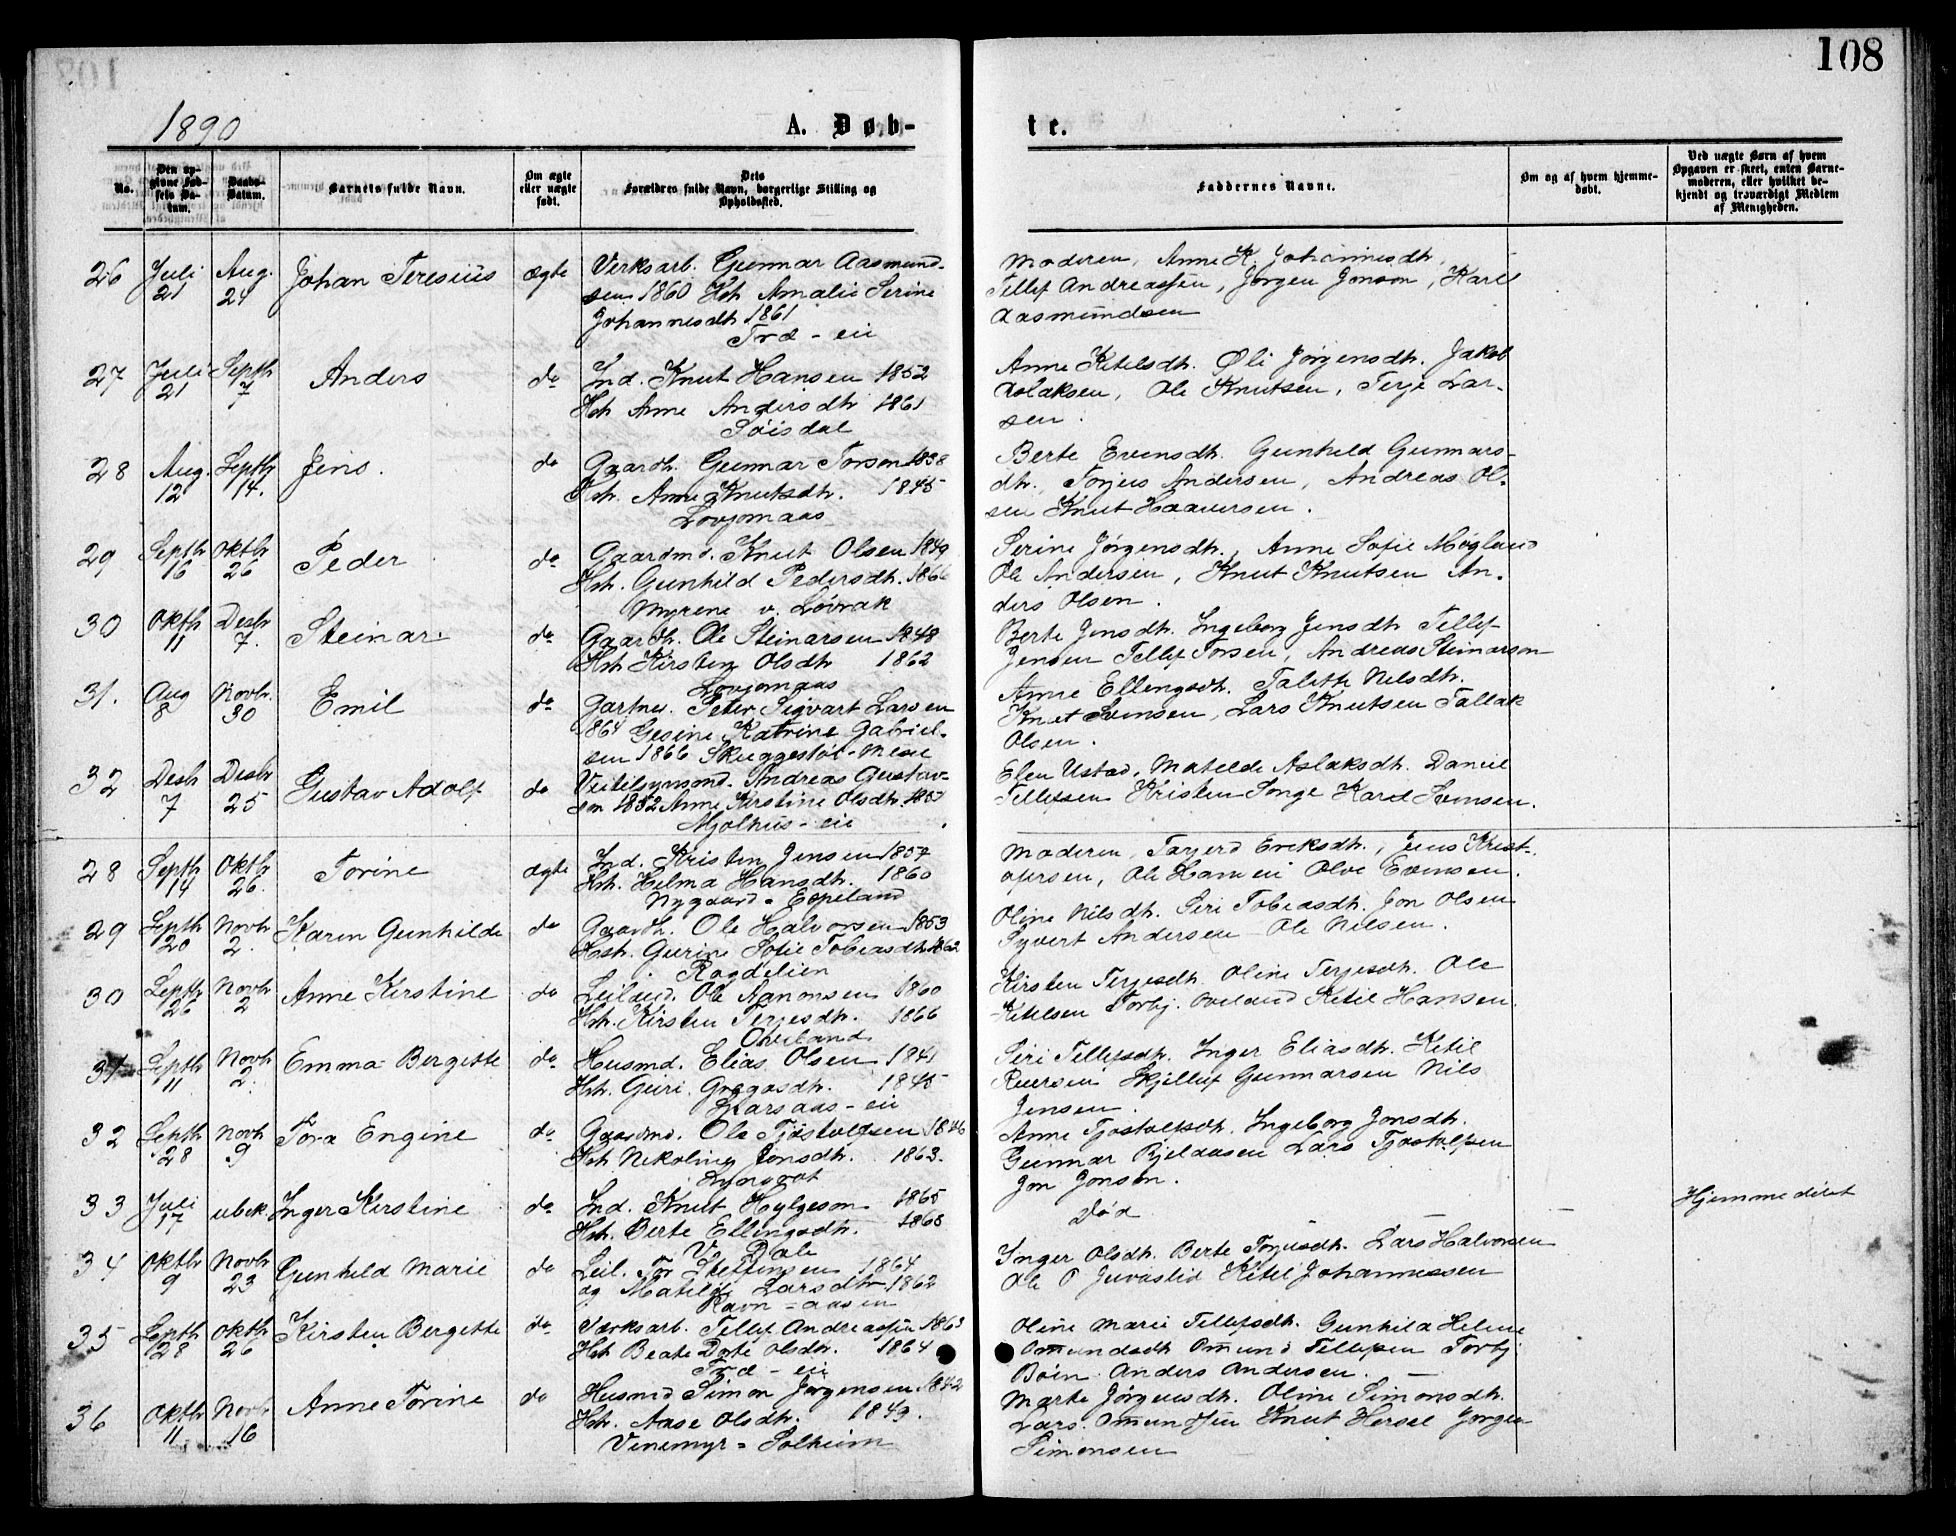 108
1890
A. Døb-
te.
No.
Den op-
givne Fød-
sels Da-
tum.
Daabs-
Datum.
Barnets fulde Navn.
Om ægte
eller uægte
født.
Dets
Forældres fulde Navn, borgerlige Stilling og
Opholdssted.
Faddernes Navne.
Om og af hvem hjemme-
døbt.
Ved uægte Børn af hvem
Opgaven er skeet, enten Barne-
moderen, eller hvilket be-
kjendt og troværdigt Medlem
af Menigheden.
26 Juli 21 Aug. 24 Johan Teresius ægte Verksarb. Gunnar Aasmund-
sen 1860 Hst Amalie Serine
Johannesdtr 1861
Træ - eie
Moderen, Anne K. Johannesdtr,
Tellef Andreassen, Jørgen Jonson, Karl
Aasmundsen
27 Juli 21 Septbr 7 Anders do Ind. Knut Hansen 1852
Hst Anne Andersdtr 1861
Søisdal
Anne Ketelsdtr. Øli Jørgensdtr. Jakob
Aslaksen, Ole Knutsen, Terje Lar-
sen.
28 Aug. 12 Septbr 14. Jens. do Gaardbr. Gunnar Torson 1838
Hst. Anne Knutsdtr. 1845
Lovjomaas
Berte Evensdtr. Gunhild Gunnars-
dtr. Torjus Andersen, Andreas Ol-
sen Knut Haaversen.
29 Septbr 16 Oktbr 26 Peder do Gaardmd. Knut Olsen 1849
Hst. Gunhild Pedersdtr. 1866
Myrene v. Løvrak
Serine Jørgensdtr., Anne Sofie Møgland
Ole Andersen, Knut Knutsen An-
ders Olsen.
30 Oktbr 11 Desbr 7. Steinar. do Gaardbr. Ole Steinarsen 1848
Hst Kirsten Olsdtr 1862
Lovjomaas
Berte Jensdtr. Ingeborg Jensdtr Tellef
Jensen Tellef Torsen, Andreas Steinarson
31. Aug 8 Novbr. 30 Emil do Gartner. Peter Sigvart Larsen
1864 Gesine Katrine Gabriel-
sen 1866 Skuggestøl - Mesel
Anne Ellingsdtr. Talette Nilsdtr.
Knut Svensen, Lars Knutsen Tallak
Olsen.
32 Desbr 7 Desbr 25 Gustav Adolf do Veitilsynsmd. Andreas Gustav-
sen 1852 Anne Kirstine Olsdtr.
Mjølhus - eie
Elen Ustad, Matelde Aslaksdtr. Daniel
Tellefsen Kristen Songe Karl Svensen.
28 Septbr 14 Oktbr 26. Torine ægte Ind. Kristen Jensen 1857
Hst. Helma Hansdtr. 1860
Nygaard - Espeland
Moderen, Torjerd Eriksdtr., Jens Krist-
ofersen, Ole Hansen Olve Evensen.
29 Septbr 20 Novbr 2. Karen Gunhilde do Gaardbr. Ole Halvorsen 1853
Hst. Gurine Sofie Tobiasdtr 1862
Rogdelien
Oline Nilsdtr. Siri Tobiasdtr. Jon Olsen
Syvert Andersen Ole Nilsen.
30 Septbr 26 Novbr 2 Anne Kirstine do Leilænd. Ole Aanonsen 1860
Hst. Kirsten Terjesdtr. 1866
Oveland
Kirsten Terjesdtr. Oline Terjesdtr. Ole
Ketelsen Torbj. Oveland Ketil Hansen.
31 Septbr 11 Novbr 2. Emma Bergitte do Husmd. Elias Olsen 1841
Hst. Guri Gregasdtr. 1845
Karsaas - eie
Siri Tellefsdtr. Inger Eliasdtr. Ketil
Reiersen Skjellef Gunnarsen Nils
Jensen.
32 Septbr 28 Novbr 9 Tora Engine do Gaardmd. Ole Tjøstolfsen 1846
Hst Nikoline Jonsdtr. 1863.
Lyngrot
Anne Tjostolfsdtr. Ingeborg Jonsdtr.
Gunnar Kjelaasen Lars Tjostolfsen
Jon Jonsen.
33 Juli 17 ubek. Inger Kirstine do Ind. Knut Hylgeson 1865
Hst. Berte Ellingsdtr. 1868
V. Dale
Død
Hjemmedøbt
34 Oktbr 9 Novbr 23 Gunhild Marie do Leil. Tor Steffensen 1864
og Matilde Larsdtr 1862
Ravn - aasen
Inger Olsdtr. Berte Torjusdtr. Lars Halvorsen
Ole O Juvaslid Ketil Johannessen
35 Septbr 28 Oktbr 26 Kirsten Bergitte do Værksarb. Tellef Andreassen 1863
Hst Beate Dorte Olsdtr. 1864
Træ - eie
Oline Marie Tellefsdtr. Gunhild Helene
Omundsdtr Omund Tellefsen Torbj.
Bøin Anders Andersen.
36 Oktbr 11 Novbr 16 Anne Torine do Husmd Simon Jørgensen 1842
Hst. Aase Olsdtr. 1849.
Vinemyr - Solheim
Marte Jørgensdtr. Oline Simonsdtr.
Lars Omundsen Knut Hersel Jørgen
Simonsen